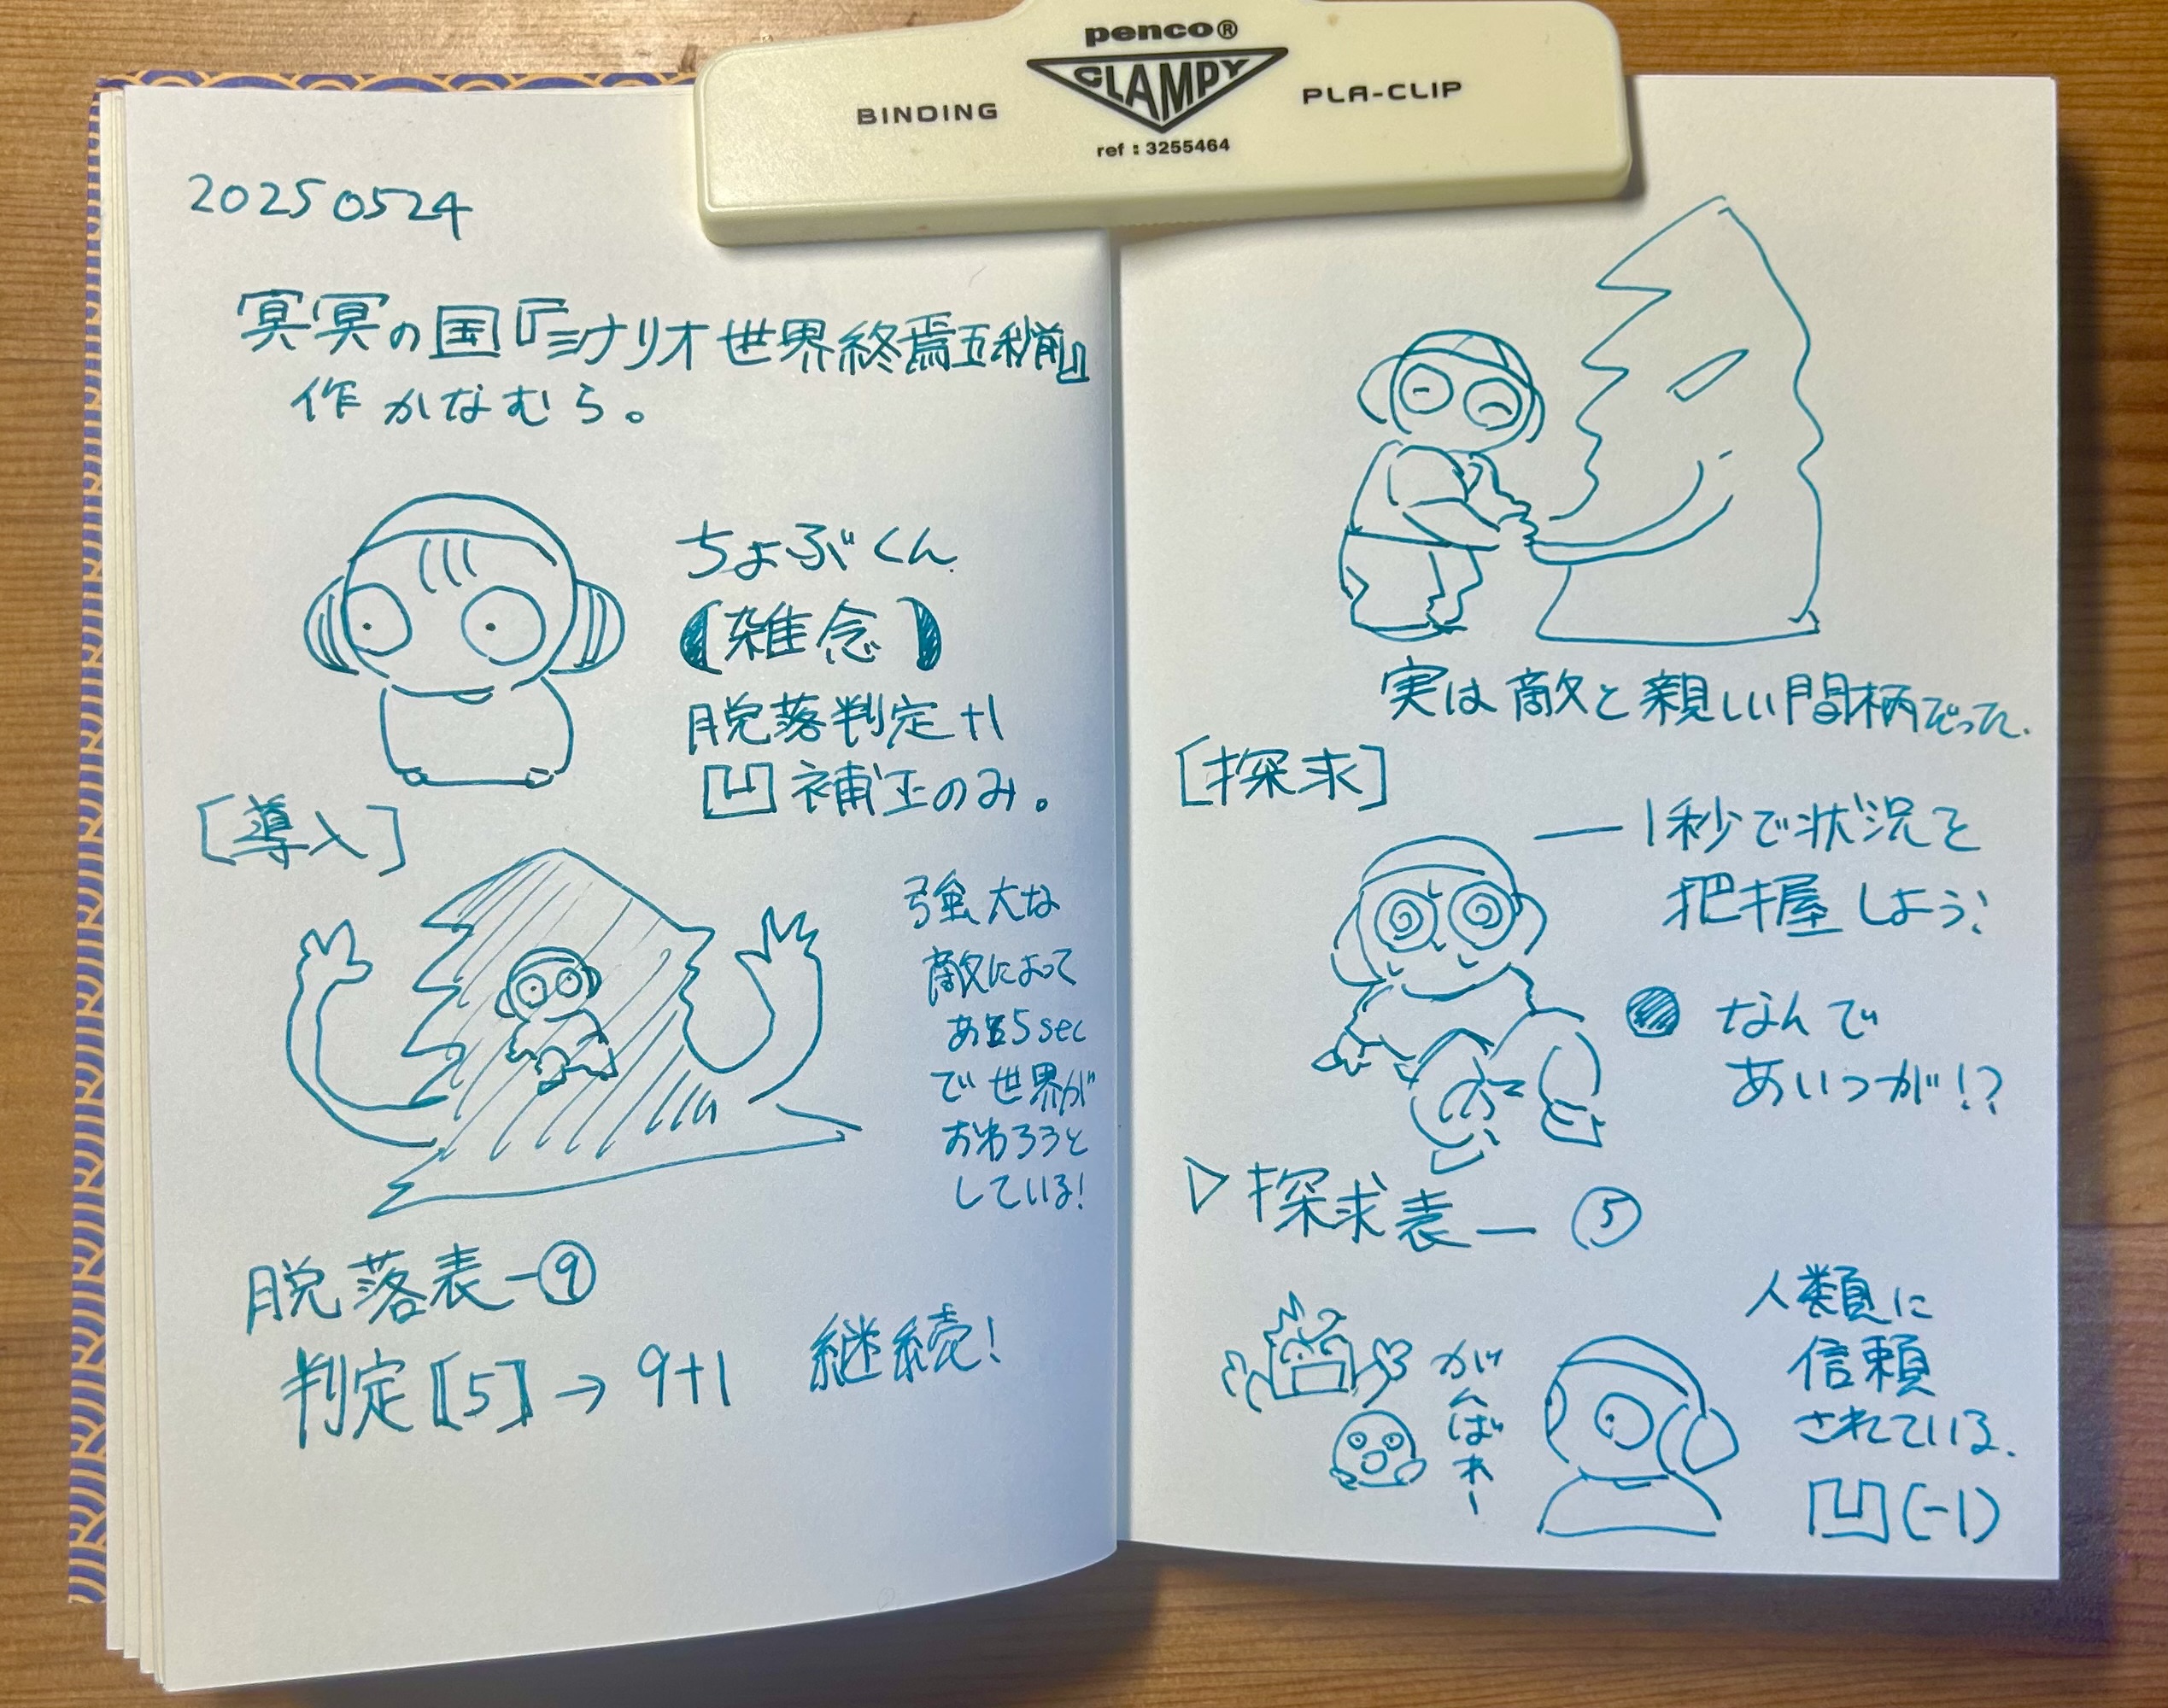 penco®
CLAMPY
BINDING
PLA-CLIP
ref : 3255464
20250524
冥冥の国『シナリオ世界終焉五秒前』
作 かなむら。
ちょぶくん
【雑念】
脱落判定+1
凹補正のみ。
[導入]
強大な
敵によって
あと5sec
で世界が
おわろうと
している!
脱落表-⑨
判定〚5〛→9+1
継続!
実は敵と親しい間柄だった.
[探求]
―1秒で状況を
把握しよう:
● なんで
あいつが!?
▷探求表―⑤
がんばれー
人類に
信頼
されている.
凹(-1)